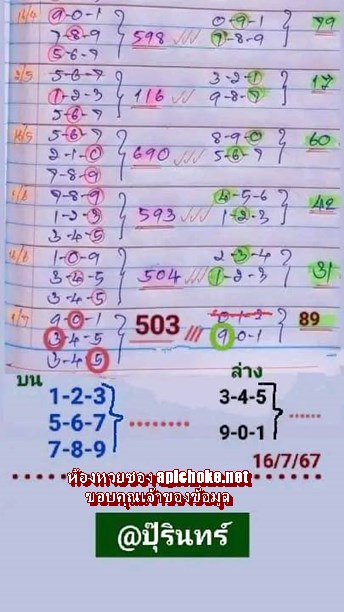 16/4 9-0-1 0-9-1 79
7-8-9 598 /// 7-8-9
5-6-7
2/5 5-6-7 3-2-1 17
1-2-3 116 /// 9-8-7
5-6-7
16/5 5-6-7 8-9-0 60
2-1-0 690 /// 5-6-7
7-8-9
1/6 7-8-9 4-5-6 42
1-2-3 593 /// 1-2-3
3-4-5
16/6 1-0-9 2-3-4 31
3-4-5 504 /// 1-2-3
3-4-5
1/7 9-0-1 503 /// 0-1-2 89
3-4-5 9-0-1
3-4-5
บน ล่าง
1-2-3 3-4-5
5-6-7
7-8-9 9-0-1
16/7/67
ห้องหวยซอง apichoke.net
ขอบคุณเจ้าของข้อมูล
@ปุ๊รินทร์